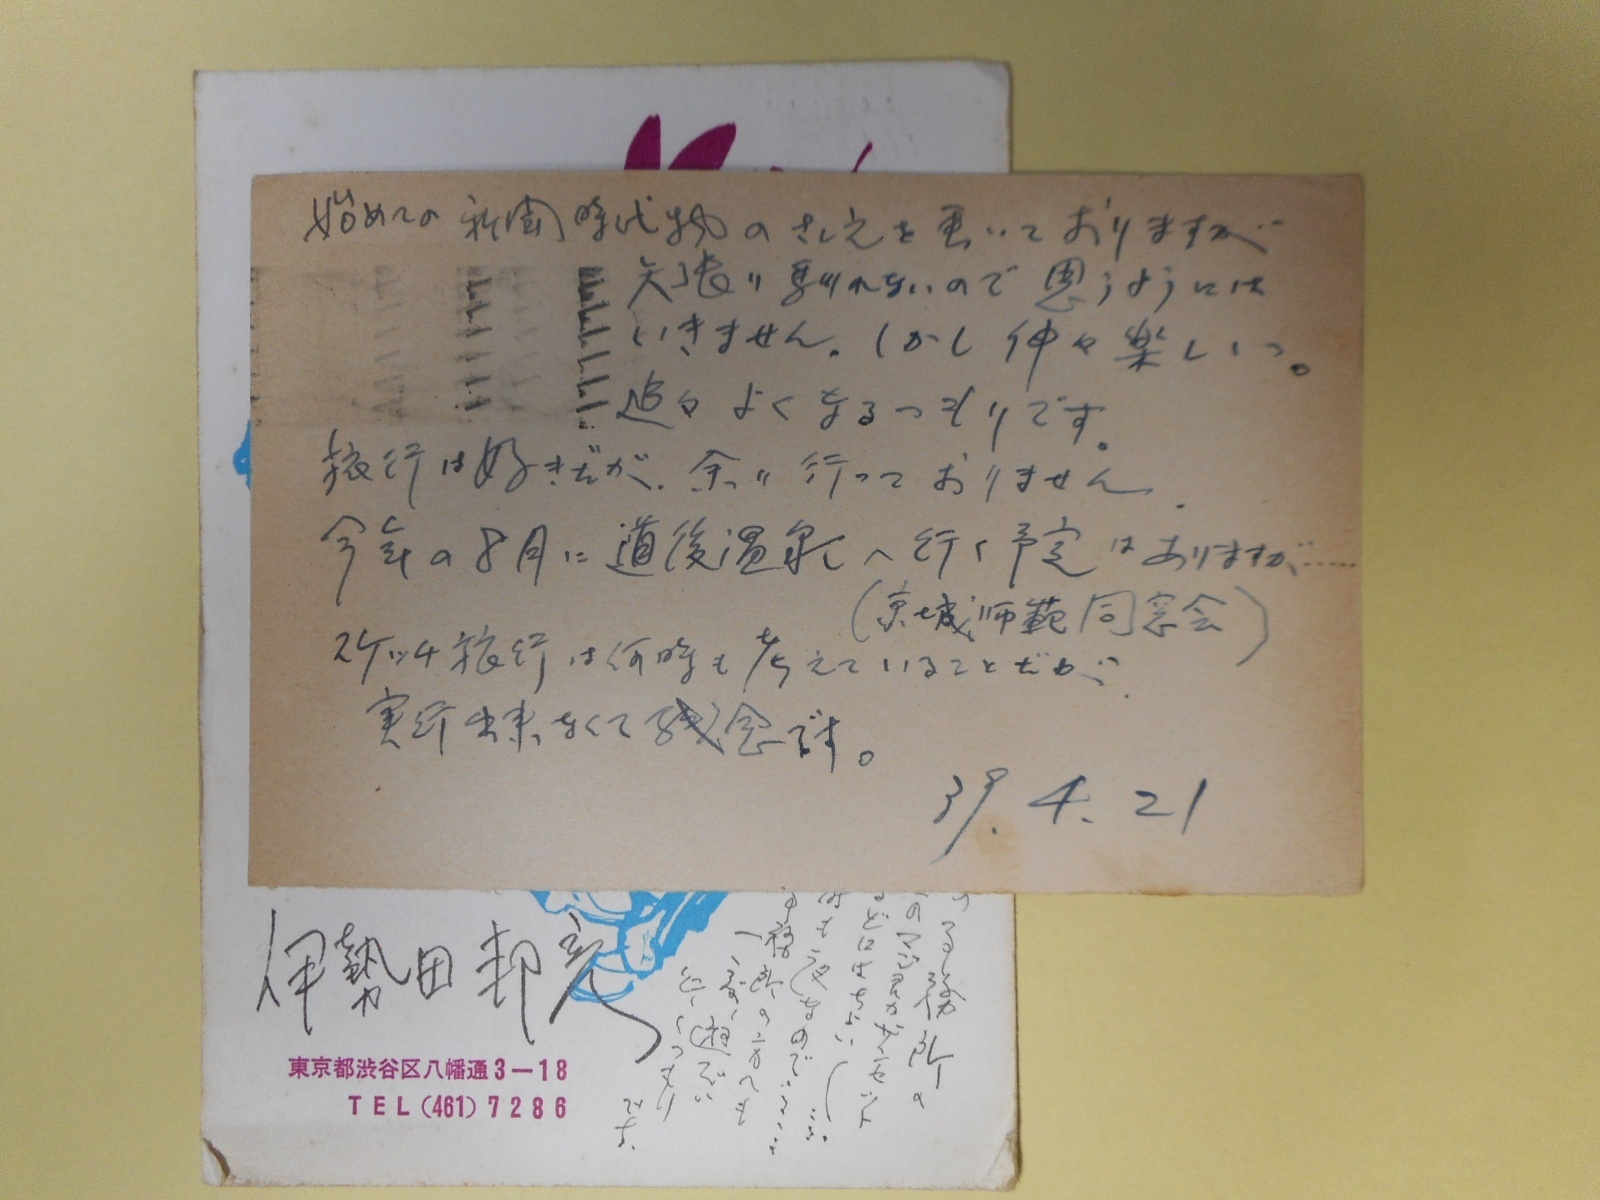 始めての新聞時代物のさしえを画いておりますが
矢張り馴れないので思うようには
いきません。しかし仲々楽しい。
追々よくなるつもりです。
旅行は好きだが、余り行っておりません。
今年の8月に道後温泉へ行く予定はありますが……
(京城師範同窓会)
スケッチ旅行は何時も考えていることだが、
実行出来なくて残念です。
39.4.21
伊勢田邦彦
東京都渋谷区八幡通3-18
TEL(461)7286
務所の
一度遊びに
行くつもり
です。